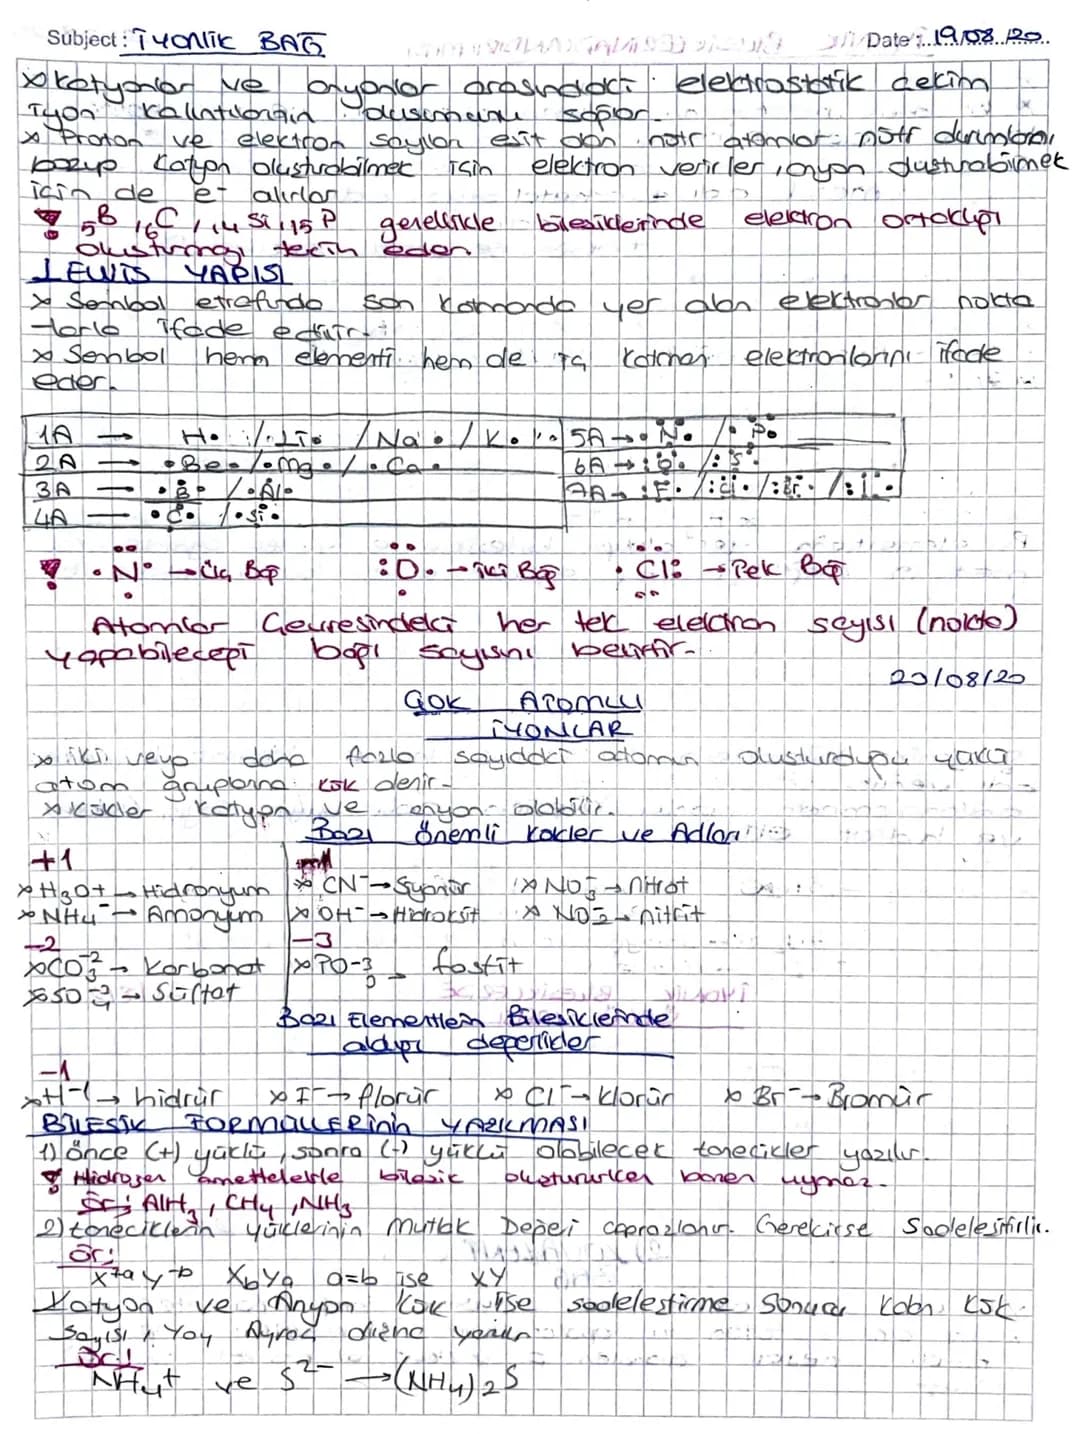 Subject: İYONİK BAĞ Date: 19/08/20
× Katyonlar ve anyonlar arasındaki elektrostatik çekim
iyon kalıntılarının oluşmasını sağlar.
× Proton ve elektron sayıları eşit olan nötr atomlar nötr durumlarını
bozup katyon oluşturabilmek için elektron verirler, anyon oluşturabilmek
için de e- alırlar
! 5B, 6C, 14Si, 15P genellikle bileşiklerinde elektron ortaklığı
oluşturmayı tercih eder.
LEWİS YAPISI
× Sembol etrafında son katmanda yer alan elektronlar nokta
-larla ifade edilir.
× Sembol hem elementi hem de iç katman elektronlarını ifade
eder.
1A → H· / ·Li· / Na· / K· 5A → ·N· / ·P·
2A → ·Be· / ·Mg· / ·Ca· 6A → :O· / :S·
3A → ·B· / ·Al· 7A → :F· / :Cl· / :Br· / :I·
4A → ·C· / ·Si·
! ·N· → Üç Bağ :O· → İki Bağ ·Cl: → Tek Bağ
Atomlar Çevresindeki her tek elektron sayısı (nokta)
yapabileceği bağ sayısını belirtir.
20/08/20
ÇOK ATOMLU
İYONLAR
× İki veya daha fazla sayıdaki atomun oluşturduğu yüklü
atom gruplarına kök denir.
× Kökler katyon ve anyon olabilir.
Bazı önemli kökler ve Adları
+1
× H3O+ → Hidronyum × CN- → Siyanür × NO3- → nitrat
× NH4- → Amonyum × OH- → Hidroksit × NO2- → nitrit
-2 -3
× CO3-2 → Karbonat × PO-3 → fosfit
× SO4-2 → Sülfat
Bazı Elementlerin Bileşiklerinde
aldığı değerlikler
-1
× H-1 → hidrür × F- → florür × Cl- → klorür × Br- → Bromür
BİLEŞİK FORMÜLLERİNİN YAZILMASI
1) önce (+) yüklü, sonra (-) yüklü olabilecek tanecikler yazılır.
! Hidrojen ametallerle bileşik oluştururken bazen uymaz.
Ör: AlH3, CH4, NH3
2) taneciklerin yüklerinin mutlak Değeri çaprazlanır. Gerekirse Sadeleştirilir.
Ör:
X+a Y-b XbYa a=b ise XY
Katyon ve Anyon kök ise sadeleştirme sonucu kalan kök
sayısı, Yay Ayraç dışına yazılır
Ör:
NH4+ ve S2- → (NH4)2S